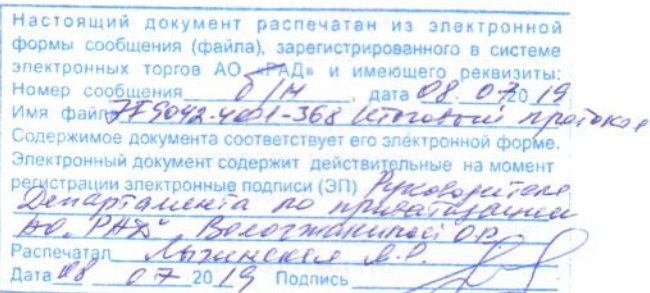 Настоящий документ распечатан из электронной
формы сообщения (файла), зарегистрированного в системе
электронных торгов АО «РАД» и имеющего реквизиты:
Номер сообщения б/н, дата 08.07 2019
Имя файл Итоговый протокол
Содержимое документа соответствует его электронной форме.
Электронный документ содержит действительные на момент
регистрации электронные подписи (ЭП) Руководителя
Департамента по приватизации
АО "РАД",
Распечатал
Дата 08 07 2019 Подпись